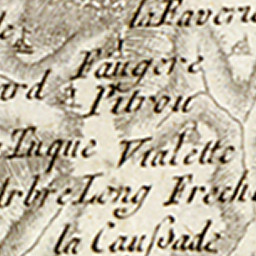 la Faverie
le
Faugere
ard
Pitrou
Tuque
Vialette
Arbre Long
Frech
la Caußade